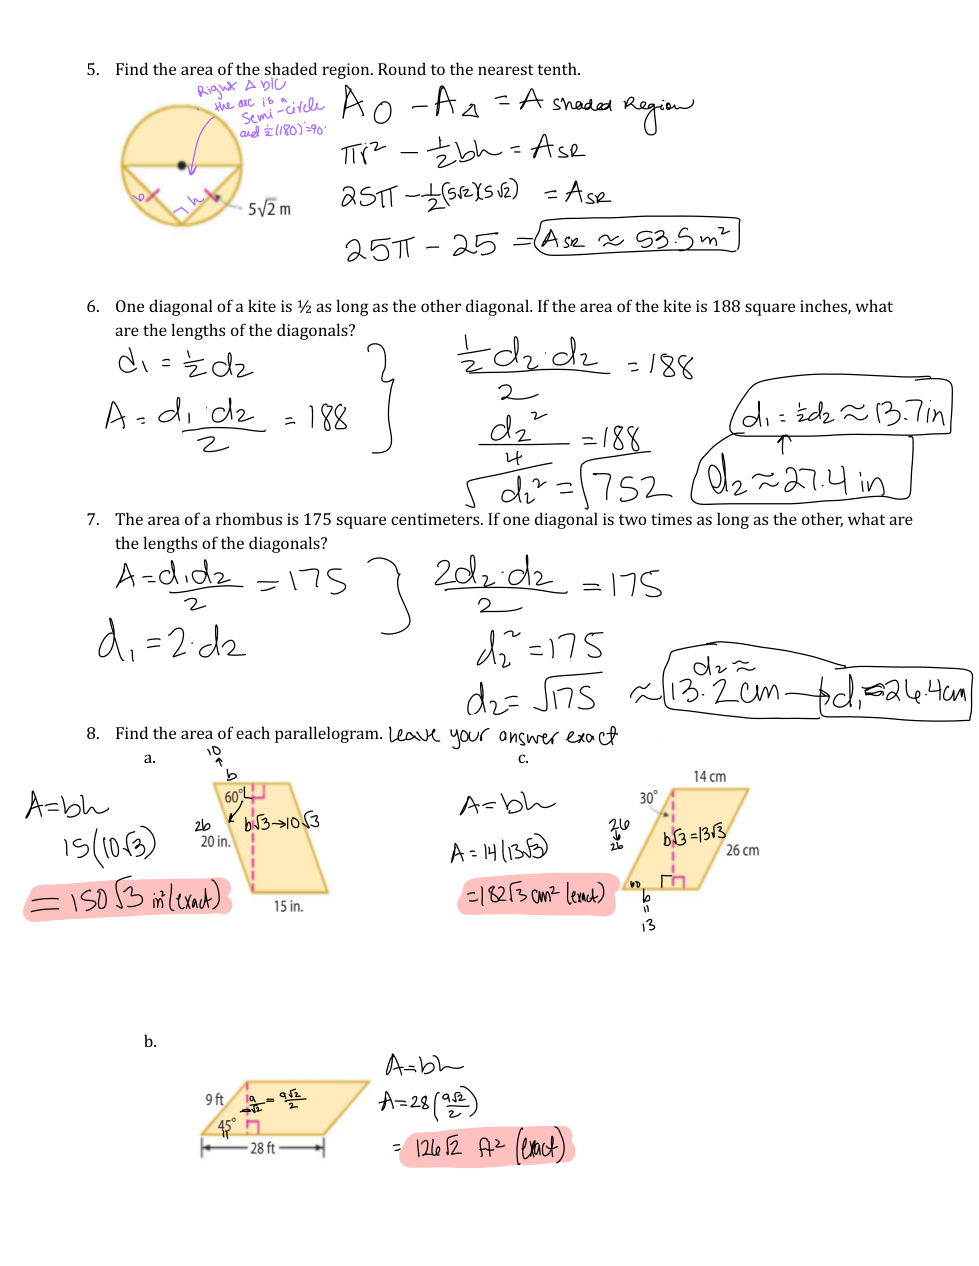 5. Find the area of the shaded region. Round to the nearest tenth.
Right △ b/c
the arc is a
semi-circle
and ½(180)=90°
b
h
5√2 m
A○ - A△ = A shaded Region
πr² - ½bh = A SR
25π - ½(5√2)(5√2) = A SR
25π - 25 = A SR ≈ 53.5 m²
6. One diagonal of a kite is ½ as long as the other diagonal. If the area of the kite is 188 square inches, what
are the lengths of the diagonals?
d₁ = ½ d₂
A = d₁·d₂/2 = 188
½ d₂·d₂/2 = 188
d₂²/4 = 188
√d₂² = √752
d₂ ≈ 27.4 in
d₁ = ½d₂ ≈ 13.7 in
7. The area of a rhombus is 175 square centimeters. If one diagonal is two times as long as the other, what are
the lengths of the diagonals?
A = d₁d₂/2 = 175
d₁ = 2·d₂
2d₂·d₂/2 = 175
d₂² = 175
d₂ = √175 ≈
d₂ ≈
13.2 cm → d₁ ≈ 26.4 cm
8. Find the area of each parallelogram. Leave your answer exact
a.
10
↑
b
60°
2b
b√3 → 10√3
20 in.
15 in.
A = bh
15(10√3)
= 150√3 in² (exact)
c.
14 cm
30°
26
2b
b√3 = 13√3
26 cm
60
b
=
13
A = bh
A = 14(13√3)
= 182√3 cm² (exact)
b.
9 ft
9/√2 = 9√2/2
45°
28 ft
A = bh
A = 28(9√2/2)
= 126√2 ft² (exact)